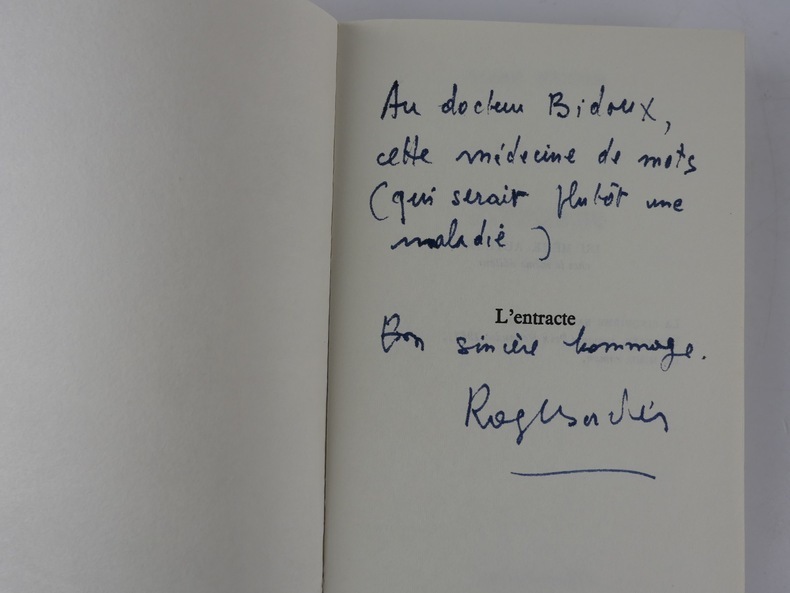 Au docteur Bidoux,
cette médecine de mots
(qui serait plutôt une
maladie)
L'entracte
Bon sincère hommage.